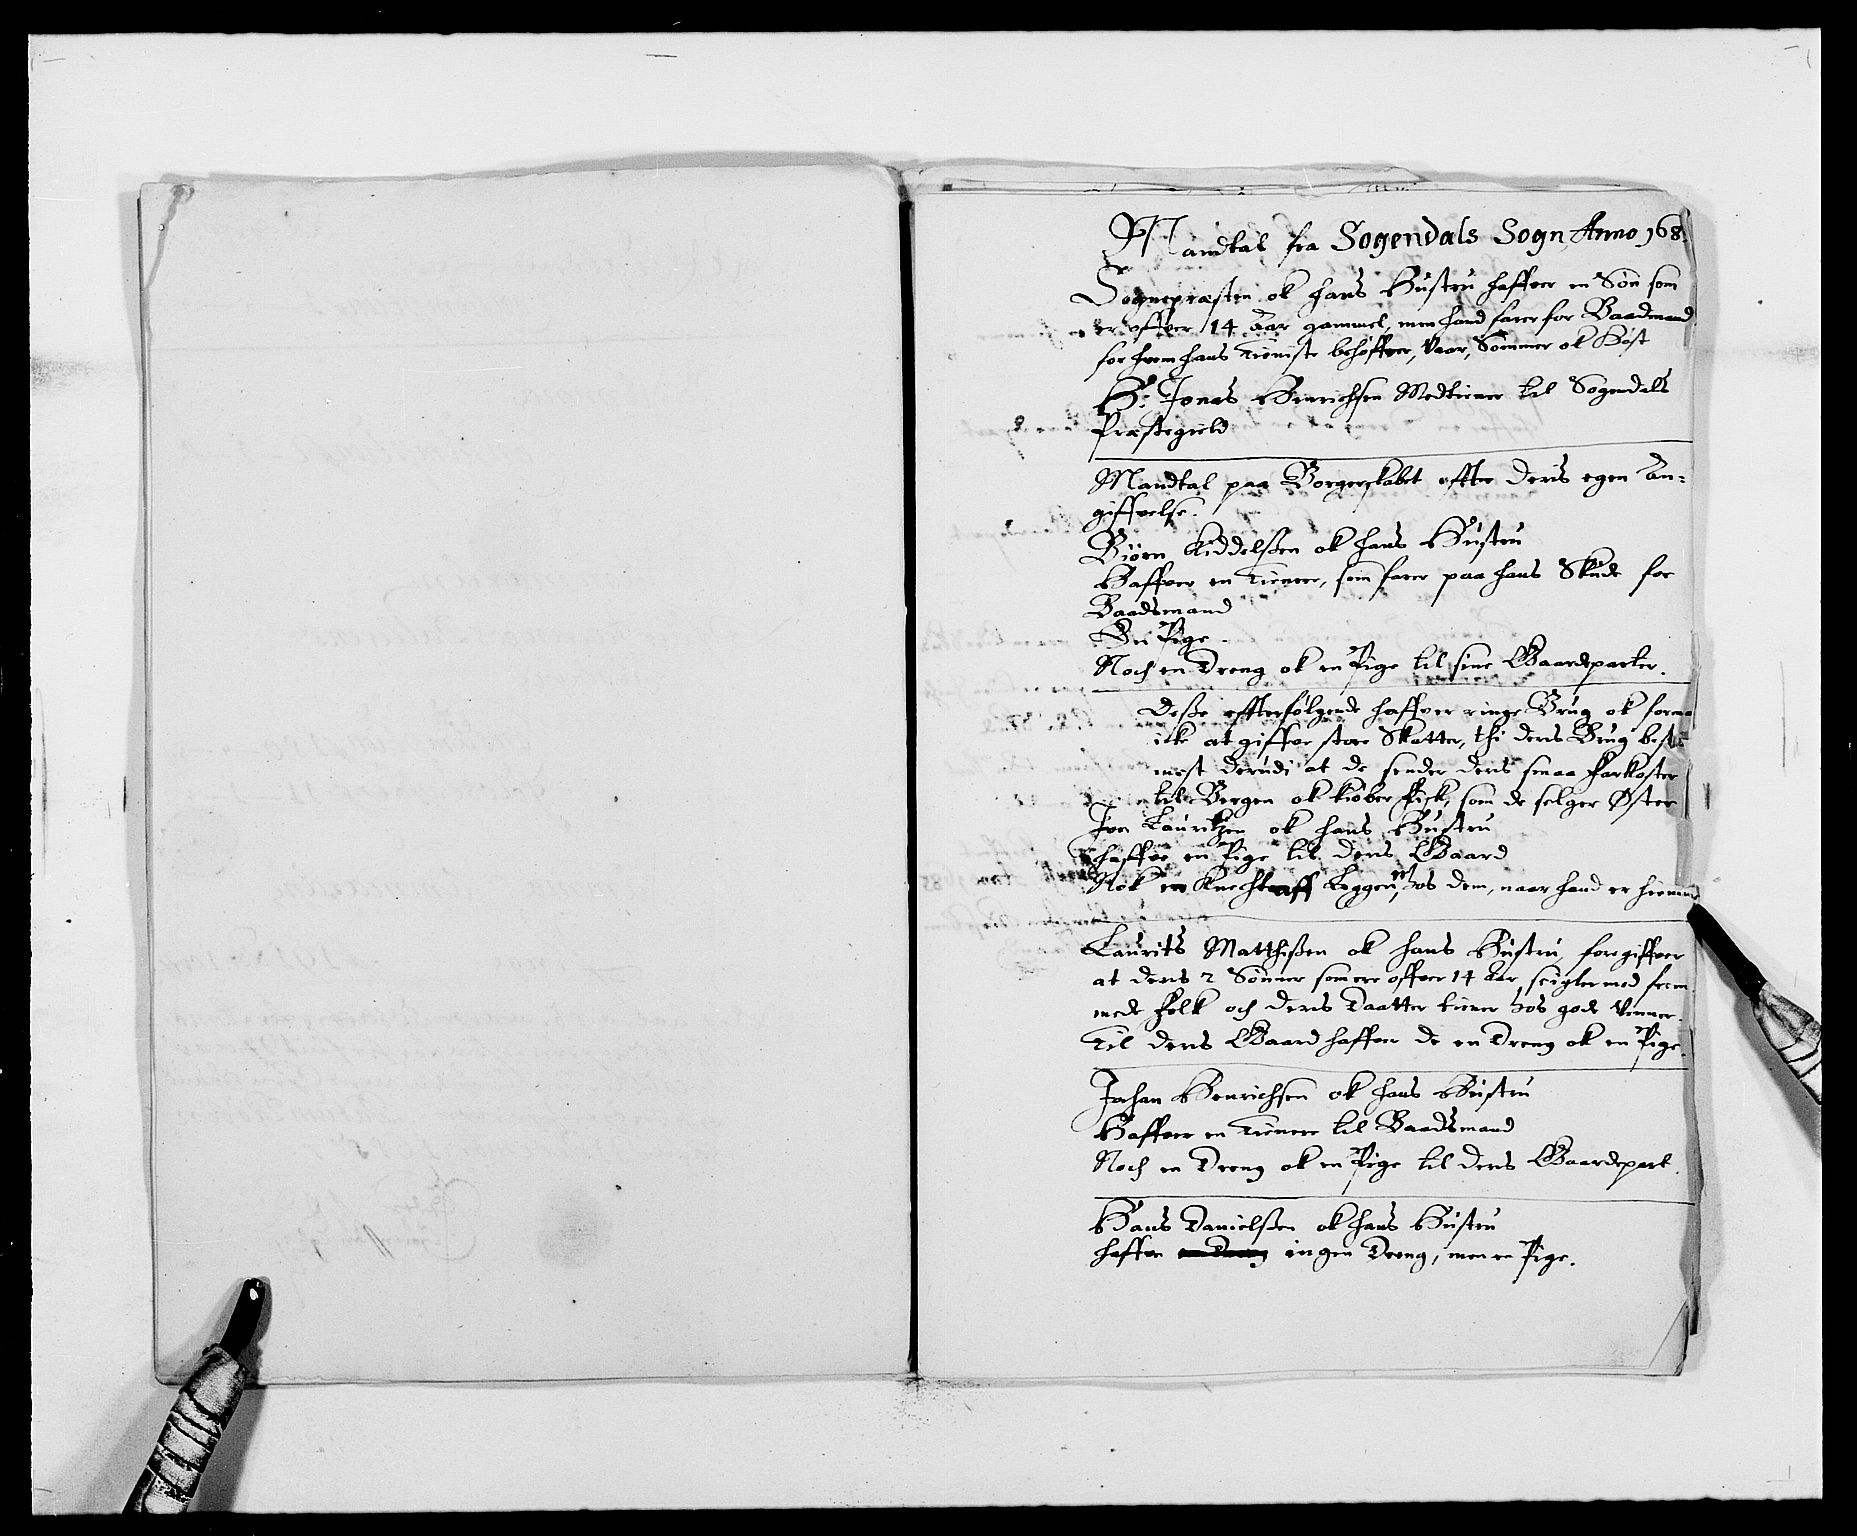 Mandtal fra Sogendals Sogn Anno 168
Sognepræsten ok hans Hustru haffver en Søn som
er offver 14 Aar gammel, men hand farer for Baadmand
for hvem hans tieniste behøffver, Vaar, Sommer ok Høst
Hr: Jonas Henrichsen Medtiener til Sogendals
Præstegield
Mandtal paa Borgerskabet effter deris egen An-
giffvelse.
Biørn Kiddelßen ok hans Hustru
Haffver en tienere, som farer paa hans Skude for
Baadsmand
En Pige
Noch en Dreng ok en Pige til sine Gaardeparter.
Deße effterfølgende haffver ringe Brug ok forma
ick at giffve store Skatter, thi deris Brug best
mest derudi at de sender deris smaa farkoster
til Bergen ok kiøber Fisk, som de selger Øster
Iver Lauritzen ok hans Hustru
haffver en Pige til deris Gaard
Nok en Knecht aff Leggen, hos dem, naar hand er hiemme
Laurits Matthißen ok hans Hustru foregiffver
at deris 2 Sønner som ere offver 14 Aar, seigler med frem
mede folk och deris Daatter tiener hos gode Venner.
Til deris Gaard haffver de en Dreng ok en Pige.
Johan Henrichsen ok hans Hustru
Haffver en tienere til Baadsmand
Noch en Dreng ok en Pige til deris Gaardepart.
Hans Danielßen ok hans Hustru
haffver en Dreng ingen Dreng, men en Pige.